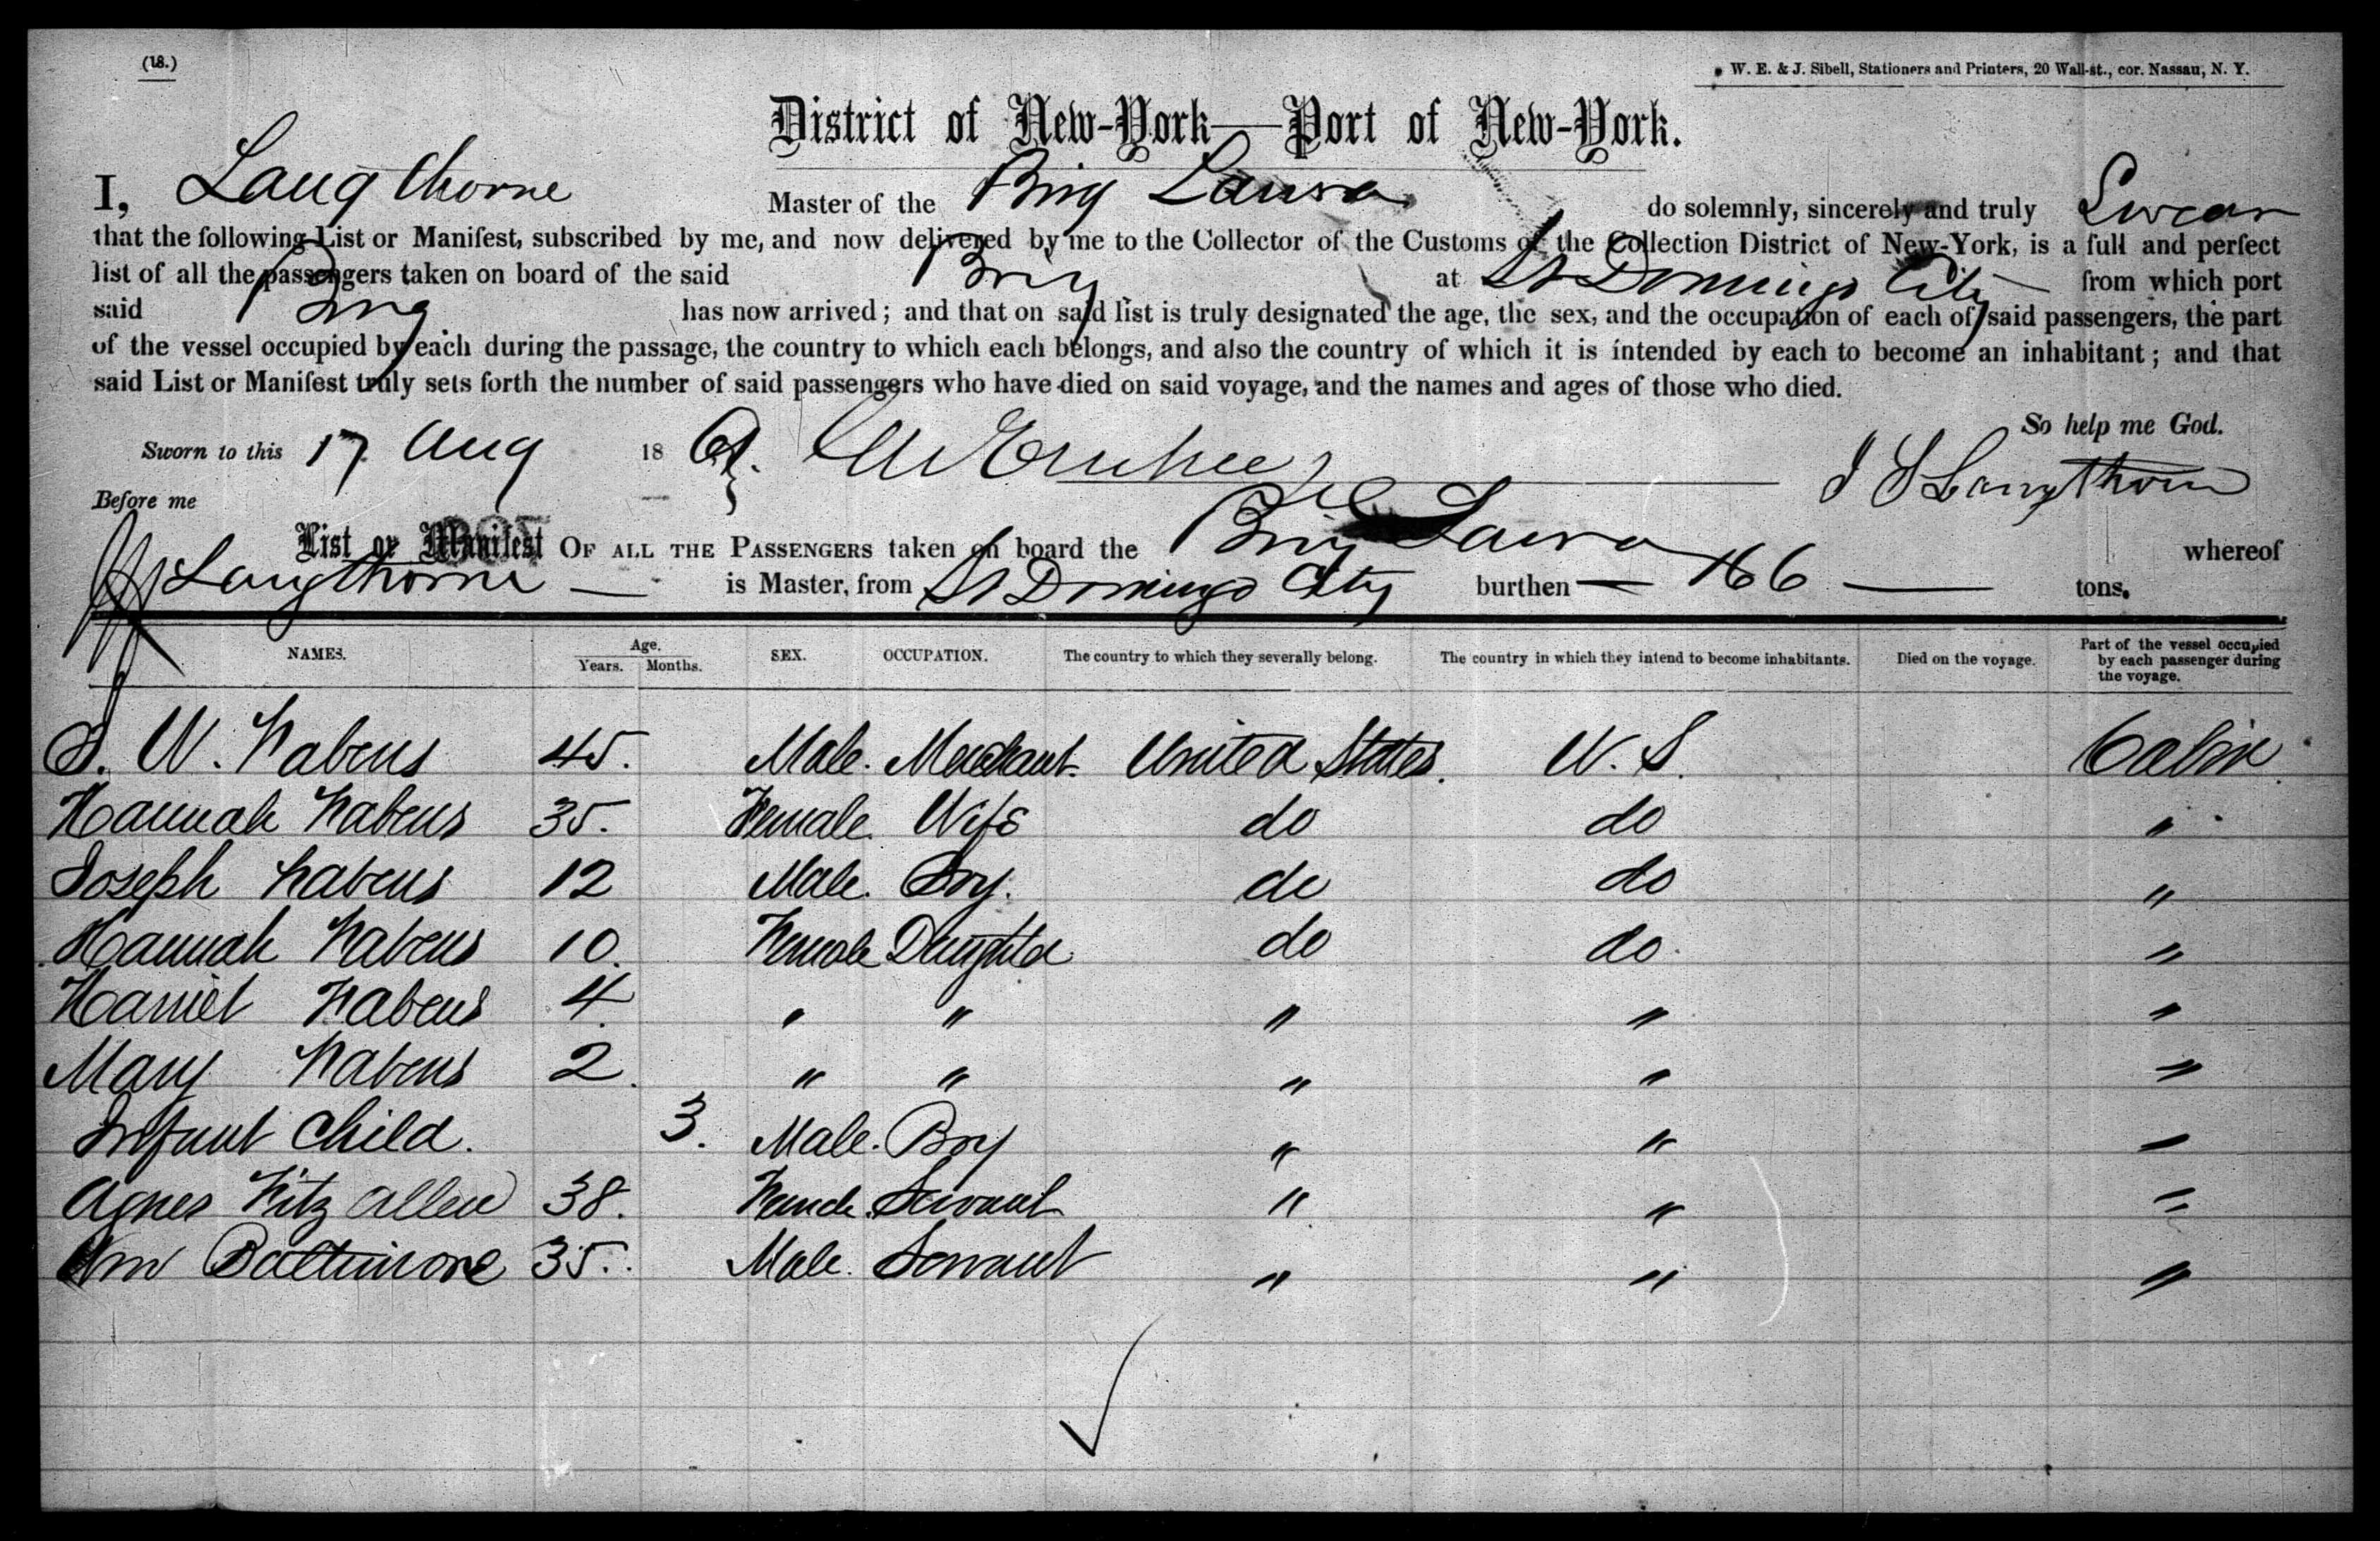 (18.)
W. E. & J. Sibell, Stationers and Printers, 20 Wall-st., cor. Nassau, N. Y.
District of New-York—Port of New-York.
I, Langthorne Master of the Brig Laura do solemnly, sincerely and truly Swear
that the following List or Manifest, subscribed by me, and now delivered by me to the Collector of the Customs of the Collection District of New-York, is a full and perfect
list of all the passengers taken on board of the said Brig at St Domingo City from which port
said Brig has now arrived; and that on said list is truly designated the age, the sex, and the occupation of each of said passengers, the part
of the vessel occupied by each during the passage, the country to which each belongs, and also the country of which it is intended by each to become an inhabitant; and that
said List or Manifest truly sets forth the number of said passengers who have died on said voyage, and the names and ages of those who died.
So help me God.
Sworn to this 17 Aug 18
Langthorn
Before me
List or Manifest OF ALL THE PASSENGERS taken on board the Brig Laura whereof
Langthorne — is Master, from St Domingo City burthen — 166 — tons.
NAMES. Age. Years. Months. SEX. OCCUPATION. The country to which they severally belong. The country in which they intend to become inhabitants. Died on the voyage. Part of the vessel occupied by each passenger during the voyage.
W. Fabens 45. Male. Merchant. United States. U. S. Cabin.
Hannah Fabens 35. Female. Wife do do "
Joseph Fabens 12 Male. Boy. do do "
Hannah Fabens 10. Female Daughter do do. "
Harriet Fabens 4. " " " " "
Mary Fabens 2. " " " " "
Infant Child. 3. Male. Boy " " "
Agnes Fitz Allen 38. Female. Servant " " "
Wm Baltimore 35. Male. Servant " " "